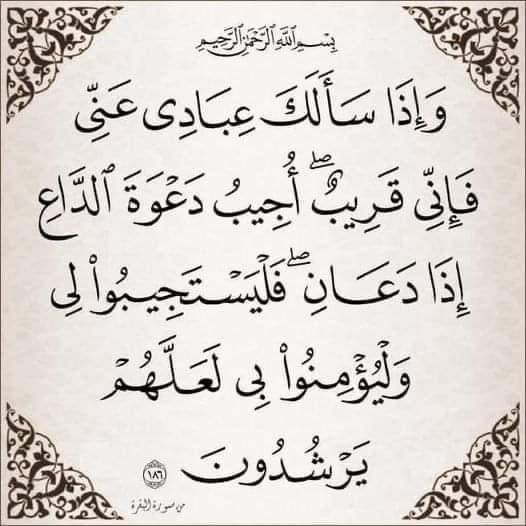 بِسْمِ ٱللَّهِ ٱلرَّحْمَٰنِ ٱلرَّحِيمِ
وَإِذَا سَأَلَكَ عِبَادِى عَنِّى
فَإِنِّى قَرِيبٌ ۖ أُجِيبُ دَعْوَةَ ٱلدَّاعِ
إِذَا دَعَانِ ۖ فَلْيَسْتَجِيبُوا۟ لِى
وَلْيُؤْمِنُوا۟ بِى لَعَلَّهُمْ
يَرْشُدُونَ ١٨٦
من سورة البقرة